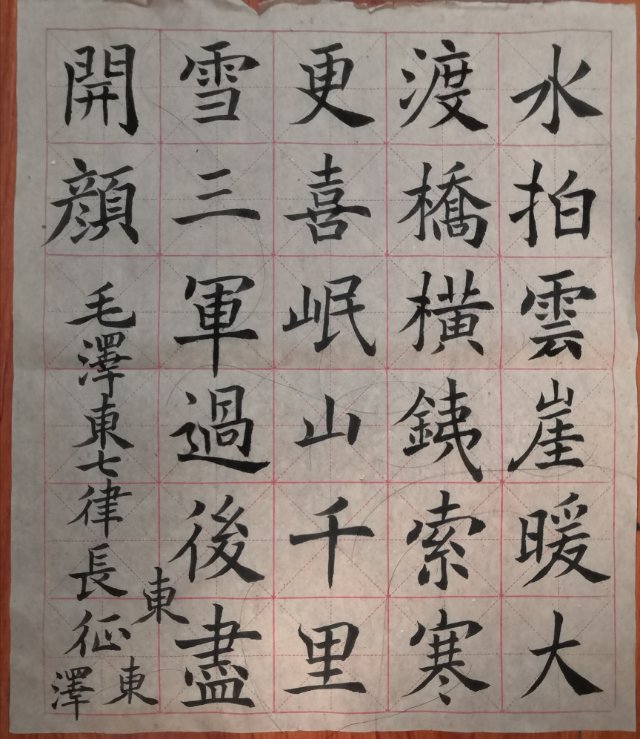 水拍雲崖暖大
渡橋橫銕索寒
更喜岷山千里
雪三軍過後盡
開顔
毛澤東七律長征
東
東
澤